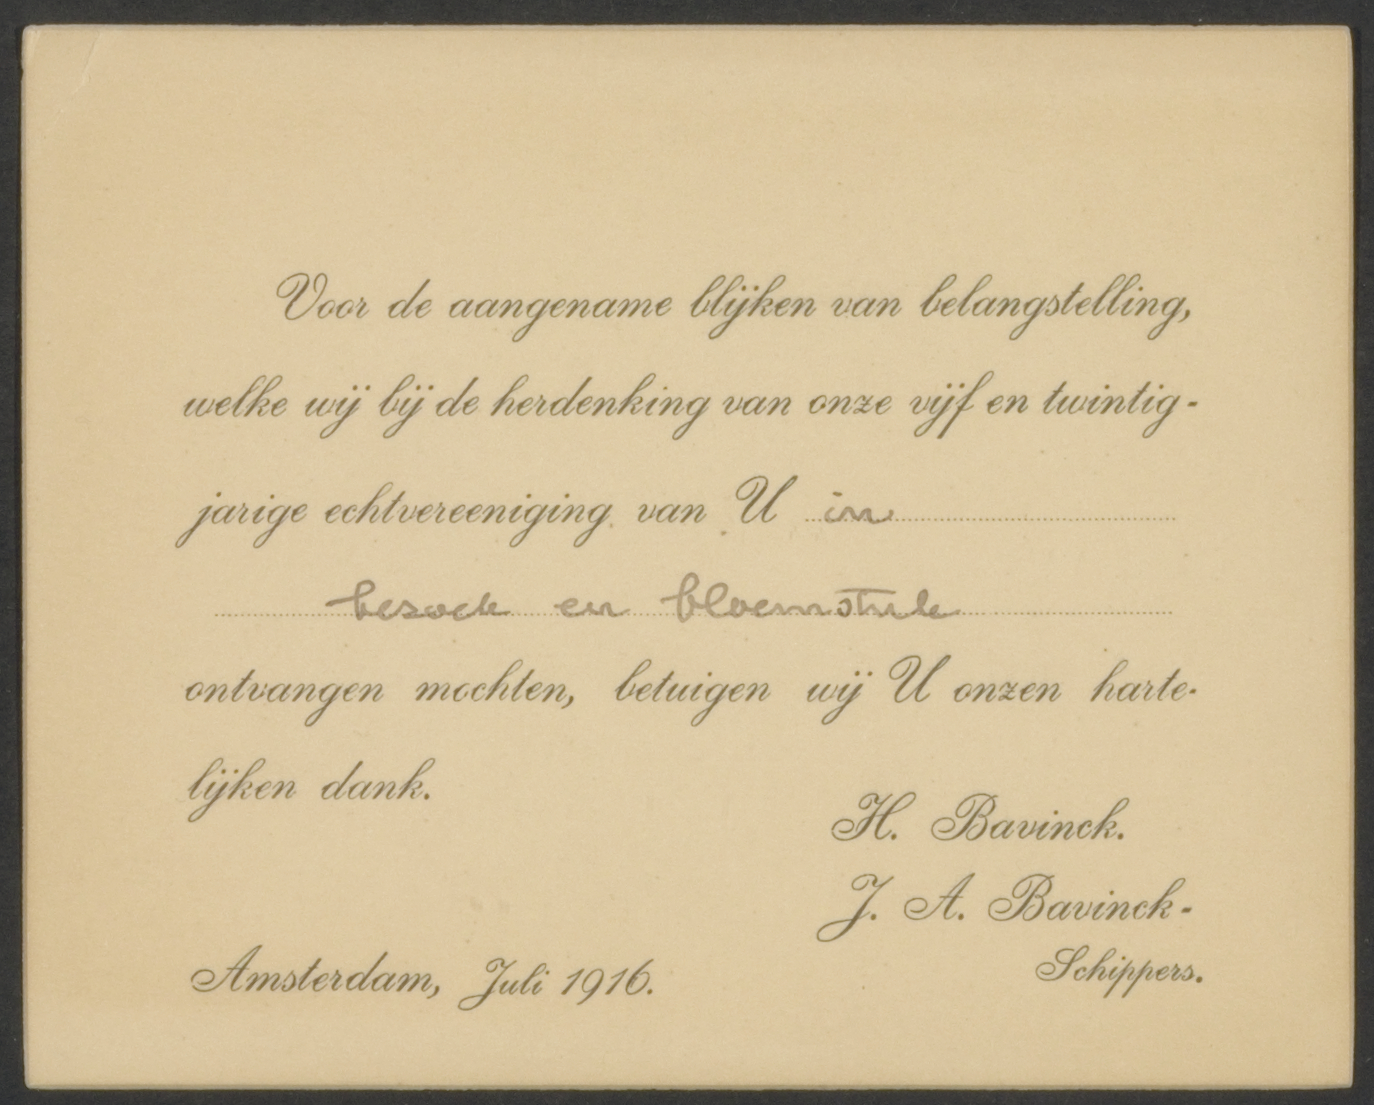 Voor de aangename blijken van belangstelling,
welke wij bij de herdenking van onze vijf en twintig-
jarige echtvereeniging van U in
bezoek en bloemstuk
ontvangen mochten, betuigen wij U onzen harte-
lijken dank.
H. Bavinck.
J. A. Bavinck-
Schippers.
Amsterdam, Juli 1916.